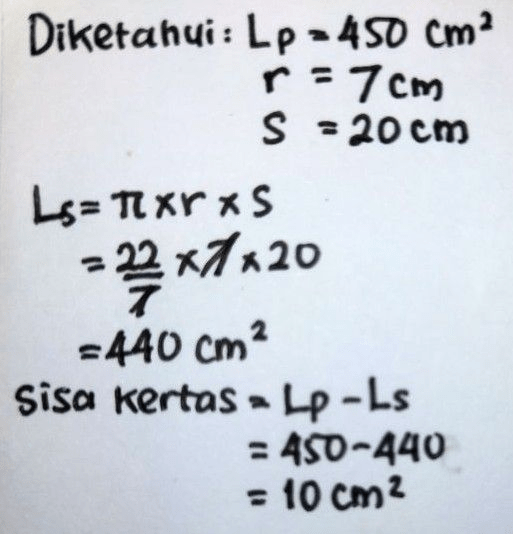 Diketahui: Lp = 450 cm²
r = 7 cm
S = 20 cm
Ls = π x r x S
= 22/7 x 7 x 20
= 440 cm²
Sisa kertas = Lp - Ls
= 450 - 440
= 10 cm²